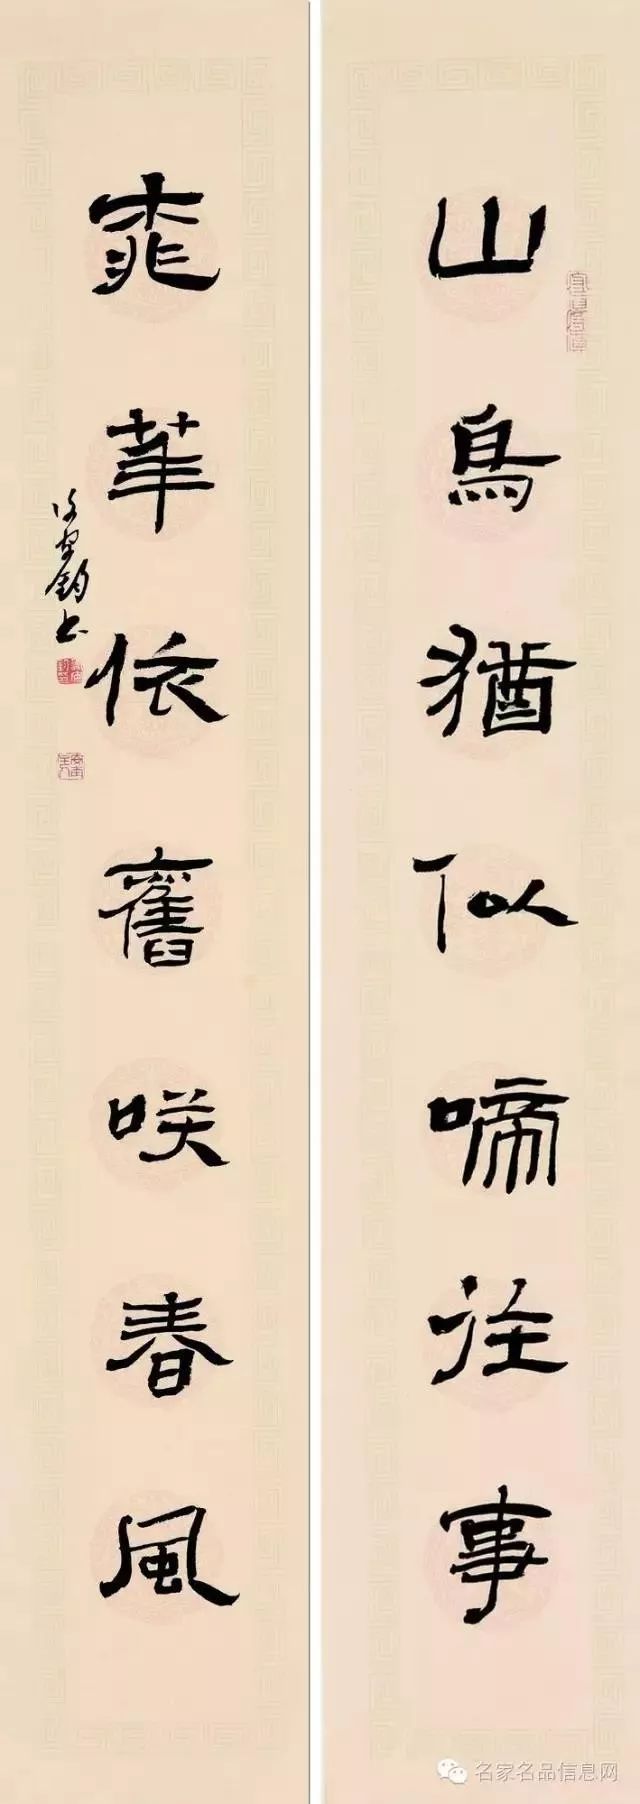 山鳥猶似啼往事
桃華依舊咲春風
名家名品信息网